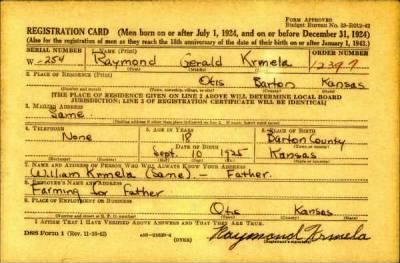 FORM APPROVED
Budget Bureau No. 33-R012-42
REGISTRATION CARD (Men born on or after July 1, 1924, and on or before December 31, 1924)
(Also for the registration of men as they reach the 18th anniversary of the date of their birth on or after January 1, 1943.)
SERIAL NUMBER 1. NAME (Print) ORDER NUMBER
W-254 Raymond Gerald Krmela 12397
(First) (Middle) (Last)
2. PLACE OF RESIDENCE (Print)
Otis Barton Kansas
(Number and street) (Town, township, village, or city) (County) (State)
[THE PLACE OF RESIDENCE GIVEN ON LINE 2 ABOVE WILL DETERMINE LOCAL BOARD
JURISDICTION; LINE 2 OF REGISTRATION CERTIFICATE WILL BE IDENTICAL]
3. MAILING ADDRESS
Same
4. TELEPHONE 5. AGE IN YEARS 6. PLACE OF BIRTH
None 18 Barton County
DATE OF BIRTH
Sept. 10 1925 Kansas
(Exchange) (Number) (Mo.) (Day) (Yr.) (State or country)
7. NAME AND ADDRESS OF PERSON WHO WILL ALWAYS KNOW YOUR ADDRESS
William Krmela (Same) - Father.
8. EMPLOYER'S NAME AND ADDRESS
Farming for Father
9. PLACE OF EMPLOYMENT OR BUSINESS
Otis Kansas
(Number and street or R. F. D. number) (Town) (County) (State)
I AFFIRM THAT I HAVE VERIFIED ABOVE ANSWERS AND THAT THEY ARE TRUE.
DSS Form 1 (Rev. 11-16-42) (OVER) Raymond Krmela
(Registrant's signature)